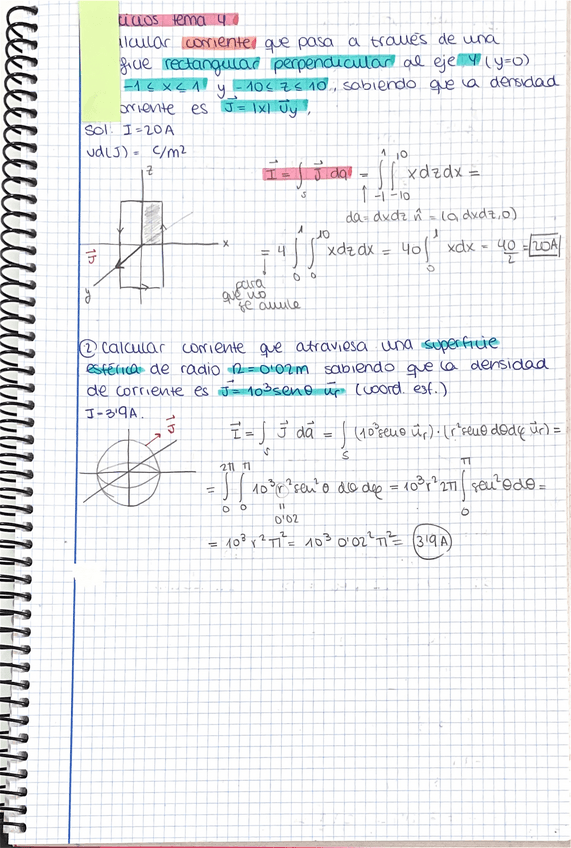 cicios tema 4
alcular corriente que pasa a través de una
ficie rectangular perpendicular al eje y (y=0)
-1 ≤ x ≤ 1 y -10 ≤ z ≤ 10, sabiendo que la densidad
orriente es J⃗ = |x| u⃗y.
Sol: I=20A
ud(J) = C/m²
z
x
y
J⃗
I⃗ = ∫s J⃗ da⃗ = ∫₋₁¹ ∫₋₁₀¹⁰ x dz dx =
↑ da = dxdz n̂ = (0, dxdz, 0)
= 4 ∫₀¹ ∫₀¹⁰ x dz dx = 40 ∫₀¹ x dx = 40/2 = 20A
para
que no
se anule
② Calcular corriente que atraviesa una superficie
esférica de radio R=0'02m sabiendo que la densidad
de corriente es J⃗ = 10³ senθ u⃗r (coord. esf.)
J=3'9A.
J⃗
I⃗ = ∫s J⃗ da⃗ = ∫s (10³senθ u⃗r)·(r²senθ dθdφ u⃗r) =
= ∫₀^2π ∫₀^π 10³ r² sen²θ dθ dφ = 10³ r² 2π ∫₀^π sen²θ dθ =
"
0'02
= 10³ r² π² = 10³ 0'02² π² = 3'9A